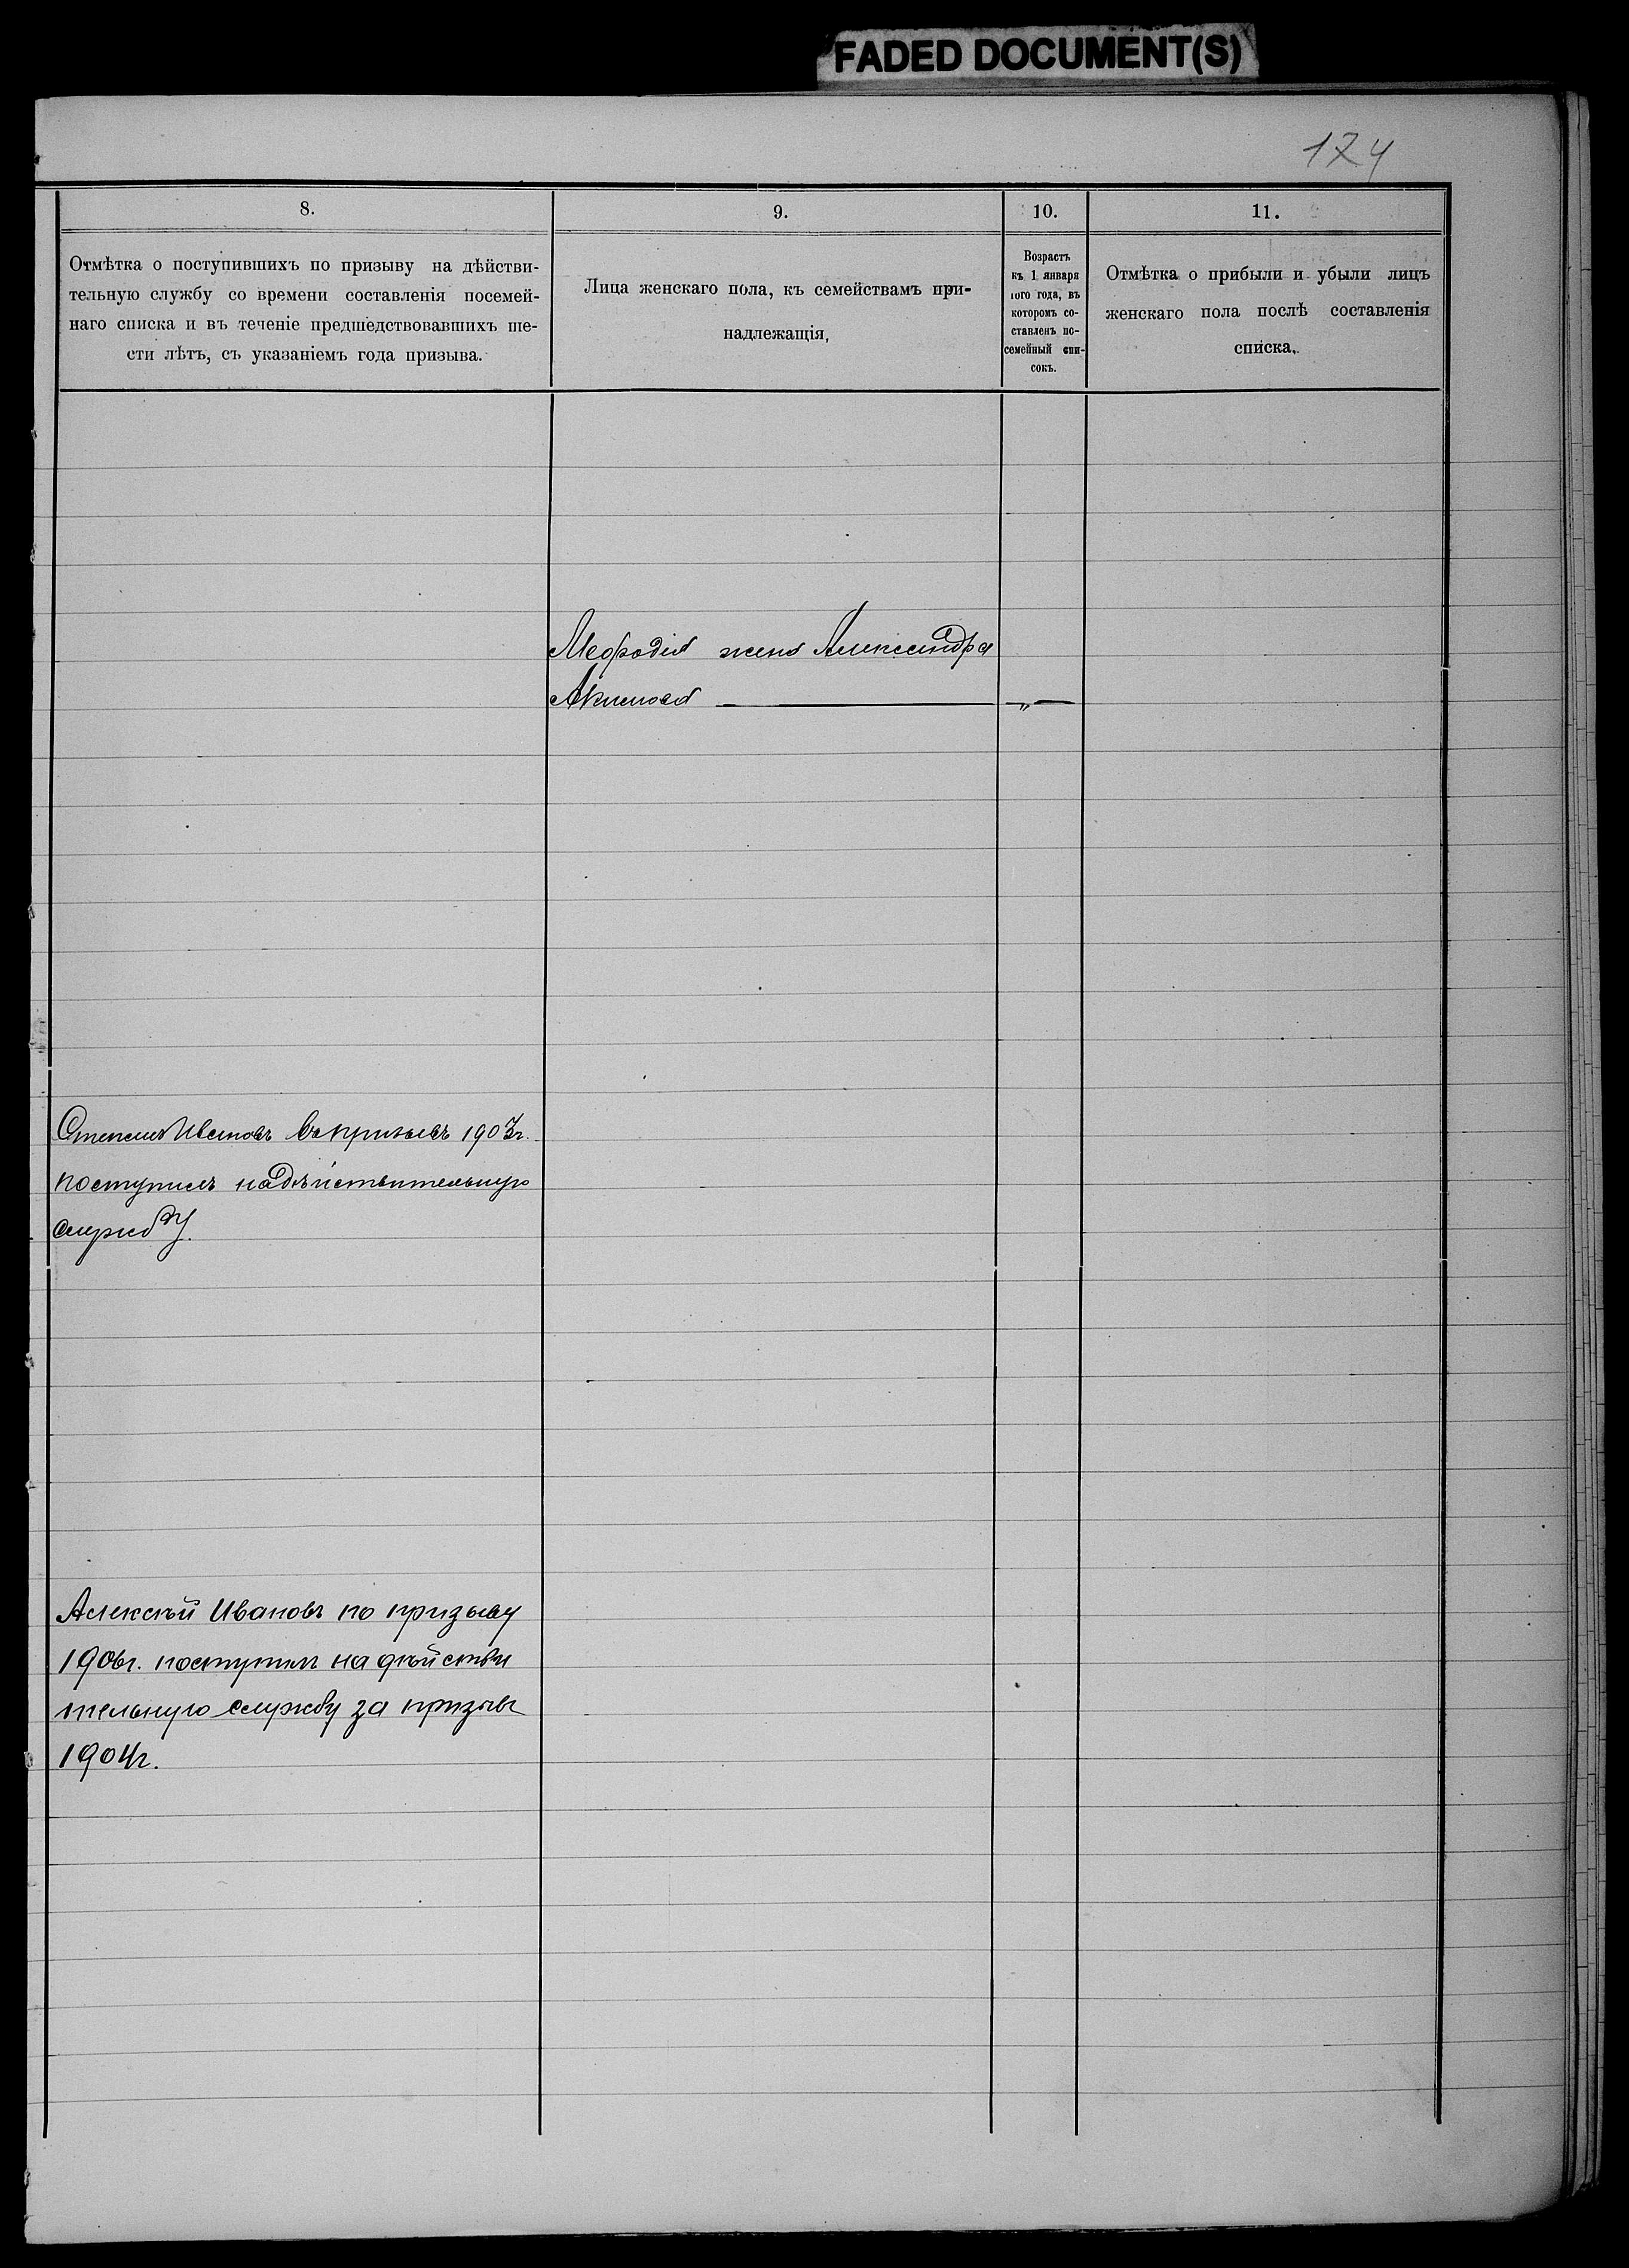 FADED DOCUMENT(S)
174
8.
9.
10.
11.
Отмѣтка о поступившихъ по призыву на дѣйстви-
тельную службу со времени составленія посемей-
наго списка и въ теченіе предшедствовавшихъ ше-
сти лѣтъ, съ указаніемъ года призыва.
Лица женскаго пола, къ семействамъ при-
надлежащія,
Возрастъ
къ 1 января
того года, въ
которомъ со-
ставленъ по-
семейный спи-
сокъ.
Отмѣтка о прибыли и убыли лицъ
женскаго пола послѣ составленія
списка.
Меѳодія жена Александра
Акимова — „ —
Степанъ Ивановъ въ призывъ 1903г.
поступилъ на дѣйствительную
службу.
Алексѣй Ивановъ по призыву
1906г. поступилъ на дѣйстви
тельную службу за призывъ
1904г.